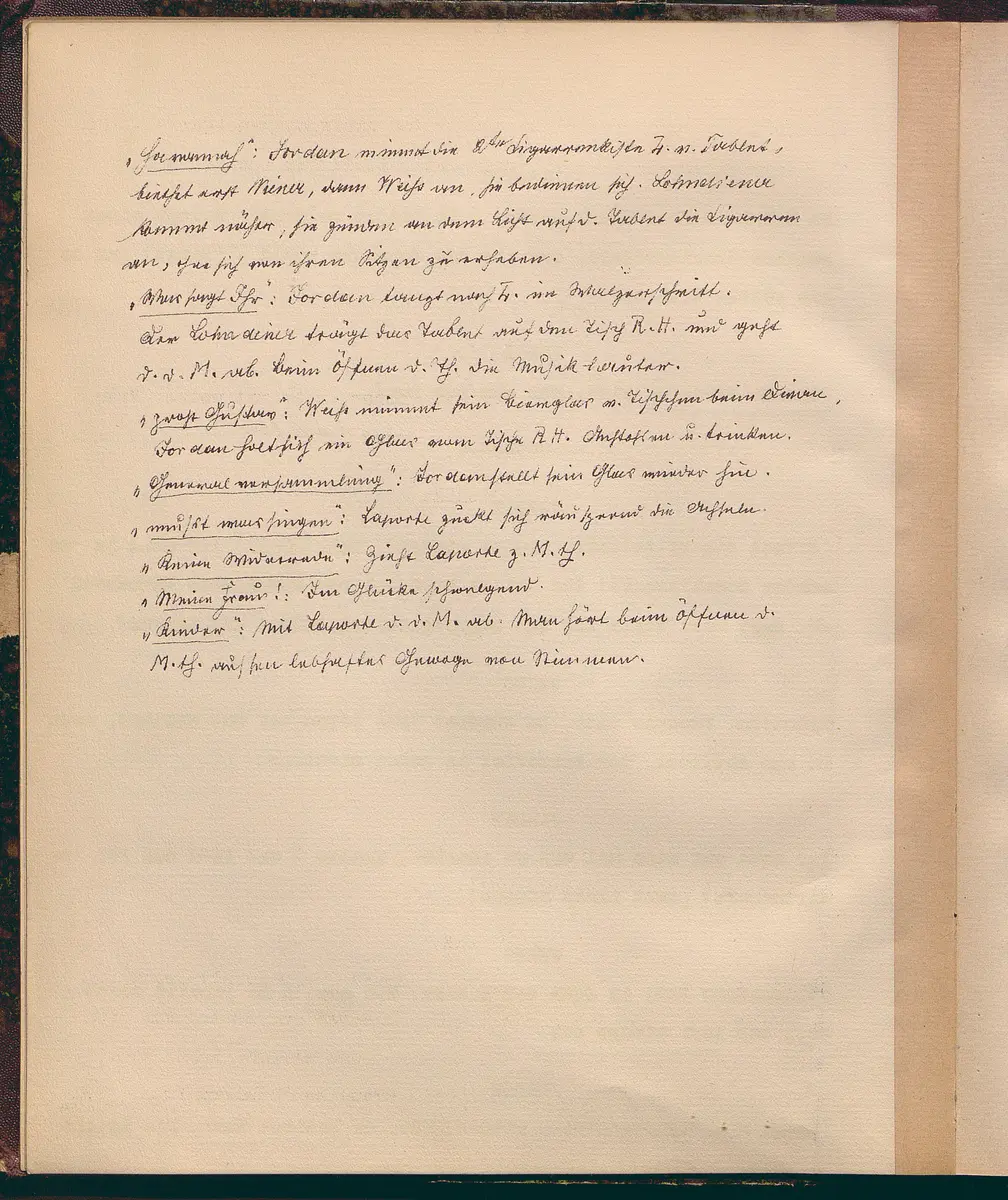 „Havannah“: Jordan nimmt die 2te Cigarrenkiste L. v. Tablet,
biethet erst Wiener, dann Weiß an, sie bedienen sich. Lohndiener
kommt näher, sie zünden an dem Licht auf d. Tablet die Cigarren
an, ohne sich von ihren Sitzen zu erheben.
„Was sagt Ihr“: Jordan tanzt nach L. im Walzerschritt.
Der Lohndiener trägt das Tablet auf den Tisch R. H. und geht
d. d. M. ab. Beim Öffnen d. Th. die Musik lauter.
„prost Gustav“: Weiß nimmt sein Bierglas v. Tischchen beim Divan,
Jordan holt sich ein Glas vom Tische R H. Anstoßen u. trinken.
„Generalversammlung“: Jordan stellt sein Glas wieder hin.
„musst was singen“: Laporte zuckt sich räuspernd die Achseln.
„Keine Widerrede“: Zieht Laporte z. M. th.
„Meine Frau!: Im Glücke schwelgend.
„Kinder“: Mit Laporte d. d. M. ab. Man hört beim Öffnen d.
M. th. aussen lebhaftes Gewoge von Stimmen.